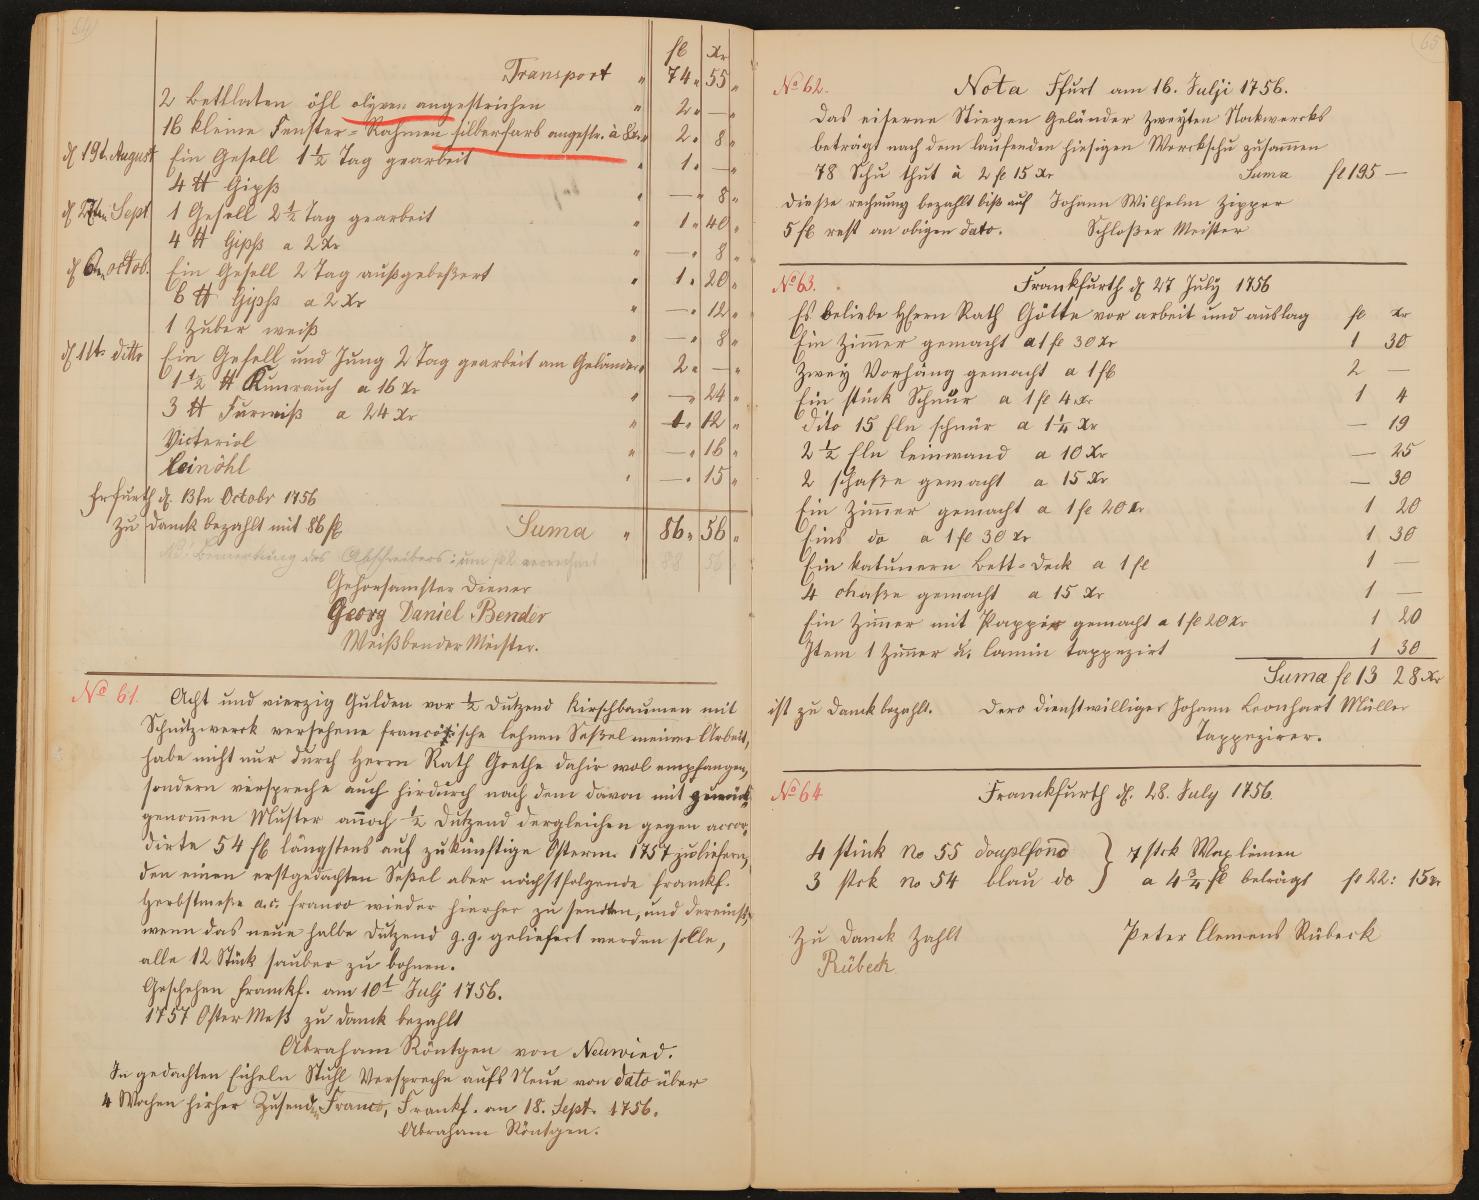 64
fl xr
Transport " 74 " 55 "
2 Bettladen öhl olyven angestrichen " 2 " — "
16 kleine Fenster-Rahmen silberfarb angestr. à 8xr " 2 " 8 "
d 19t. August Ein Gesell 1 1/2 Tag gearbeit " 1 " — "
4 ℔ Gipß " — " 8 "
d 27ten Sept 1 Gesell 2 1/2 Tag gearbeit " 1 " 40 "
4 ℔ Gipß a 2 xr " — " 8 "
d 6ten octob. Ein Gesell 2 Tag außgebeßert " 1 " 20 "
6 ℔ Gipß a 2 xr " — " 12 "
1 Zuber weiß " — " 8 "
d 11t. ditto Ein Gesell und Jung 2 Tag gearbeit am Geländer " 2 " — "
1 1/2 ℔ Kunrauch a 16 xr " — " 24 "
3 ℔ Furniß a 24 xr " 1 " 12 "
Victeriol " — " 16 "
Leinöhl " — " 15 "
Frfurth d. 13tn Octobr 1756
zu Danck bezahlt mit 86 fl Suma " 86 " 56 "
NB: Bemerkung des Abschreibers: um fl 2 verrechnet 88 56
Gehorsamster Diener
Georg Daniel Bender
Weißbender Meister.
No 61. Acht und vierzig Gulden vor 1/2 Dutzend Kirschbaumen mit
Schnitzwerck versehene francö̈sische lehnen Seßel meiner Arbeit,
habe nicht nur durch Herrn Rath Goethe dahir wol empfangen,
sondern verspreche auch hirdurch nach dem davon mit zurück
genommen Muster annoch 1/2 Dutzend dergleichen gegen accor-
dirte 54 fl längstens auf zukünftige Osterm. 1757 zu liefern,
den einen erstgedachten Seßel aber nächstfolgende franckf.
Herbstmeße a.c. franco wieder hierher zu senden, und dereinst,
wenn das neue halbe Dutzend g. g. geliefert werden solle,
alle 12 Stück sauber zu bohnen.
Geschehen franckf. am 10t Julj 1756.
1757 Oster Meß zu danck bezahlt
Abraham Röntgen von Neuwied.
In gedachten Eicheln Stuhl Verspreche aufs Neue von dato über
4 Wochen hirher Zusenden Franco, Frankf. an 18. Sept. 1756.
Abraham Röntgen.
65
No 62. Nota Ffurt am 16. Julji 1756.
Das eiserne Stiegen Geländer zweyten Stockwercks
beträgt nach dem laufenden hiesigen Werckschu zusammen
78 Schu thut à 2 fl 15 xr Suma fl 195 —
Dieße rechnung bezahlt biß auf Johann Wilhelm Zipper
5 fl rest an obigen dato. Schloßer Meister
No 63. Franckfurth d 27 July 1756
Es beliebe HErrn Rath Götte vor arbeit und auslag fl xr
Ein Zimmer gemacht a 1 fl 30 xr 1 30
Zwey Vorhäng gemacht a 1 fl 2 —
Ein stück Schnür a 1 fl 4 xr 1 4
dito 15 Eln schnür a 1 1/4 xr — 19
2 1/2 Eln leinwand a 10 xr — 25
2 schaße gemacht a 15 xr — 30
Ein Zimmer gemacht a 1 fl 20 xr 1 20
Eins do a 1 fl 30 xr 1 30
Ein katunern Bett-Deck a 1 fl 1 —
4 chaße gemacht a 15 xr 1 —
Ein Zimmer mit Pappier gemacht a 1 fl 20 xr 1 20
Item 1 Zimmer u. Camin tappezirt 1 30
Suma fl 13 28 xr
ist zu danck bezahlt. Dero dienstwilliger Johann Leonhart Müller
Tappezirer.
No 64 Franckfurth d. 28. July 1756.
4 stück no 55 douplfond } 7 stck Waxlinnen
3 stck no 54 blau do a 4 3/4 fl beträgt fl 22: 15 xr
Zu Danck Zahlt Peter Clemens Rübeck
Rübeck